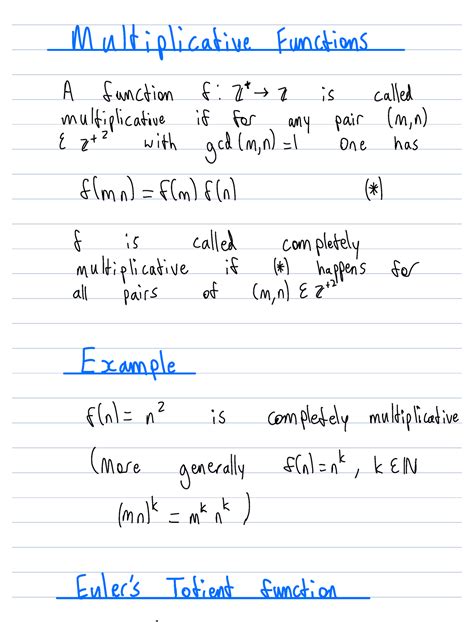 Multiplicative Functions
A function f: ℤ⁺ → ℤ is called
multiplicative if for any pair (m,n)
∈ ℤ⁺² with gcd(m,n)=1 one has
f(mn) = f(m) f(n) (*)
f is called completely
multiplicative if (*) happens for
all pairs of (m,n) ∈ ℤ⁺²
Example
f(n) = n² is completely multiplicative
(More generally f(n)=nᵏ, k ∈ ℕ
(mn)ᵏ = mᵏ nᵏ)
Euler's Totient function